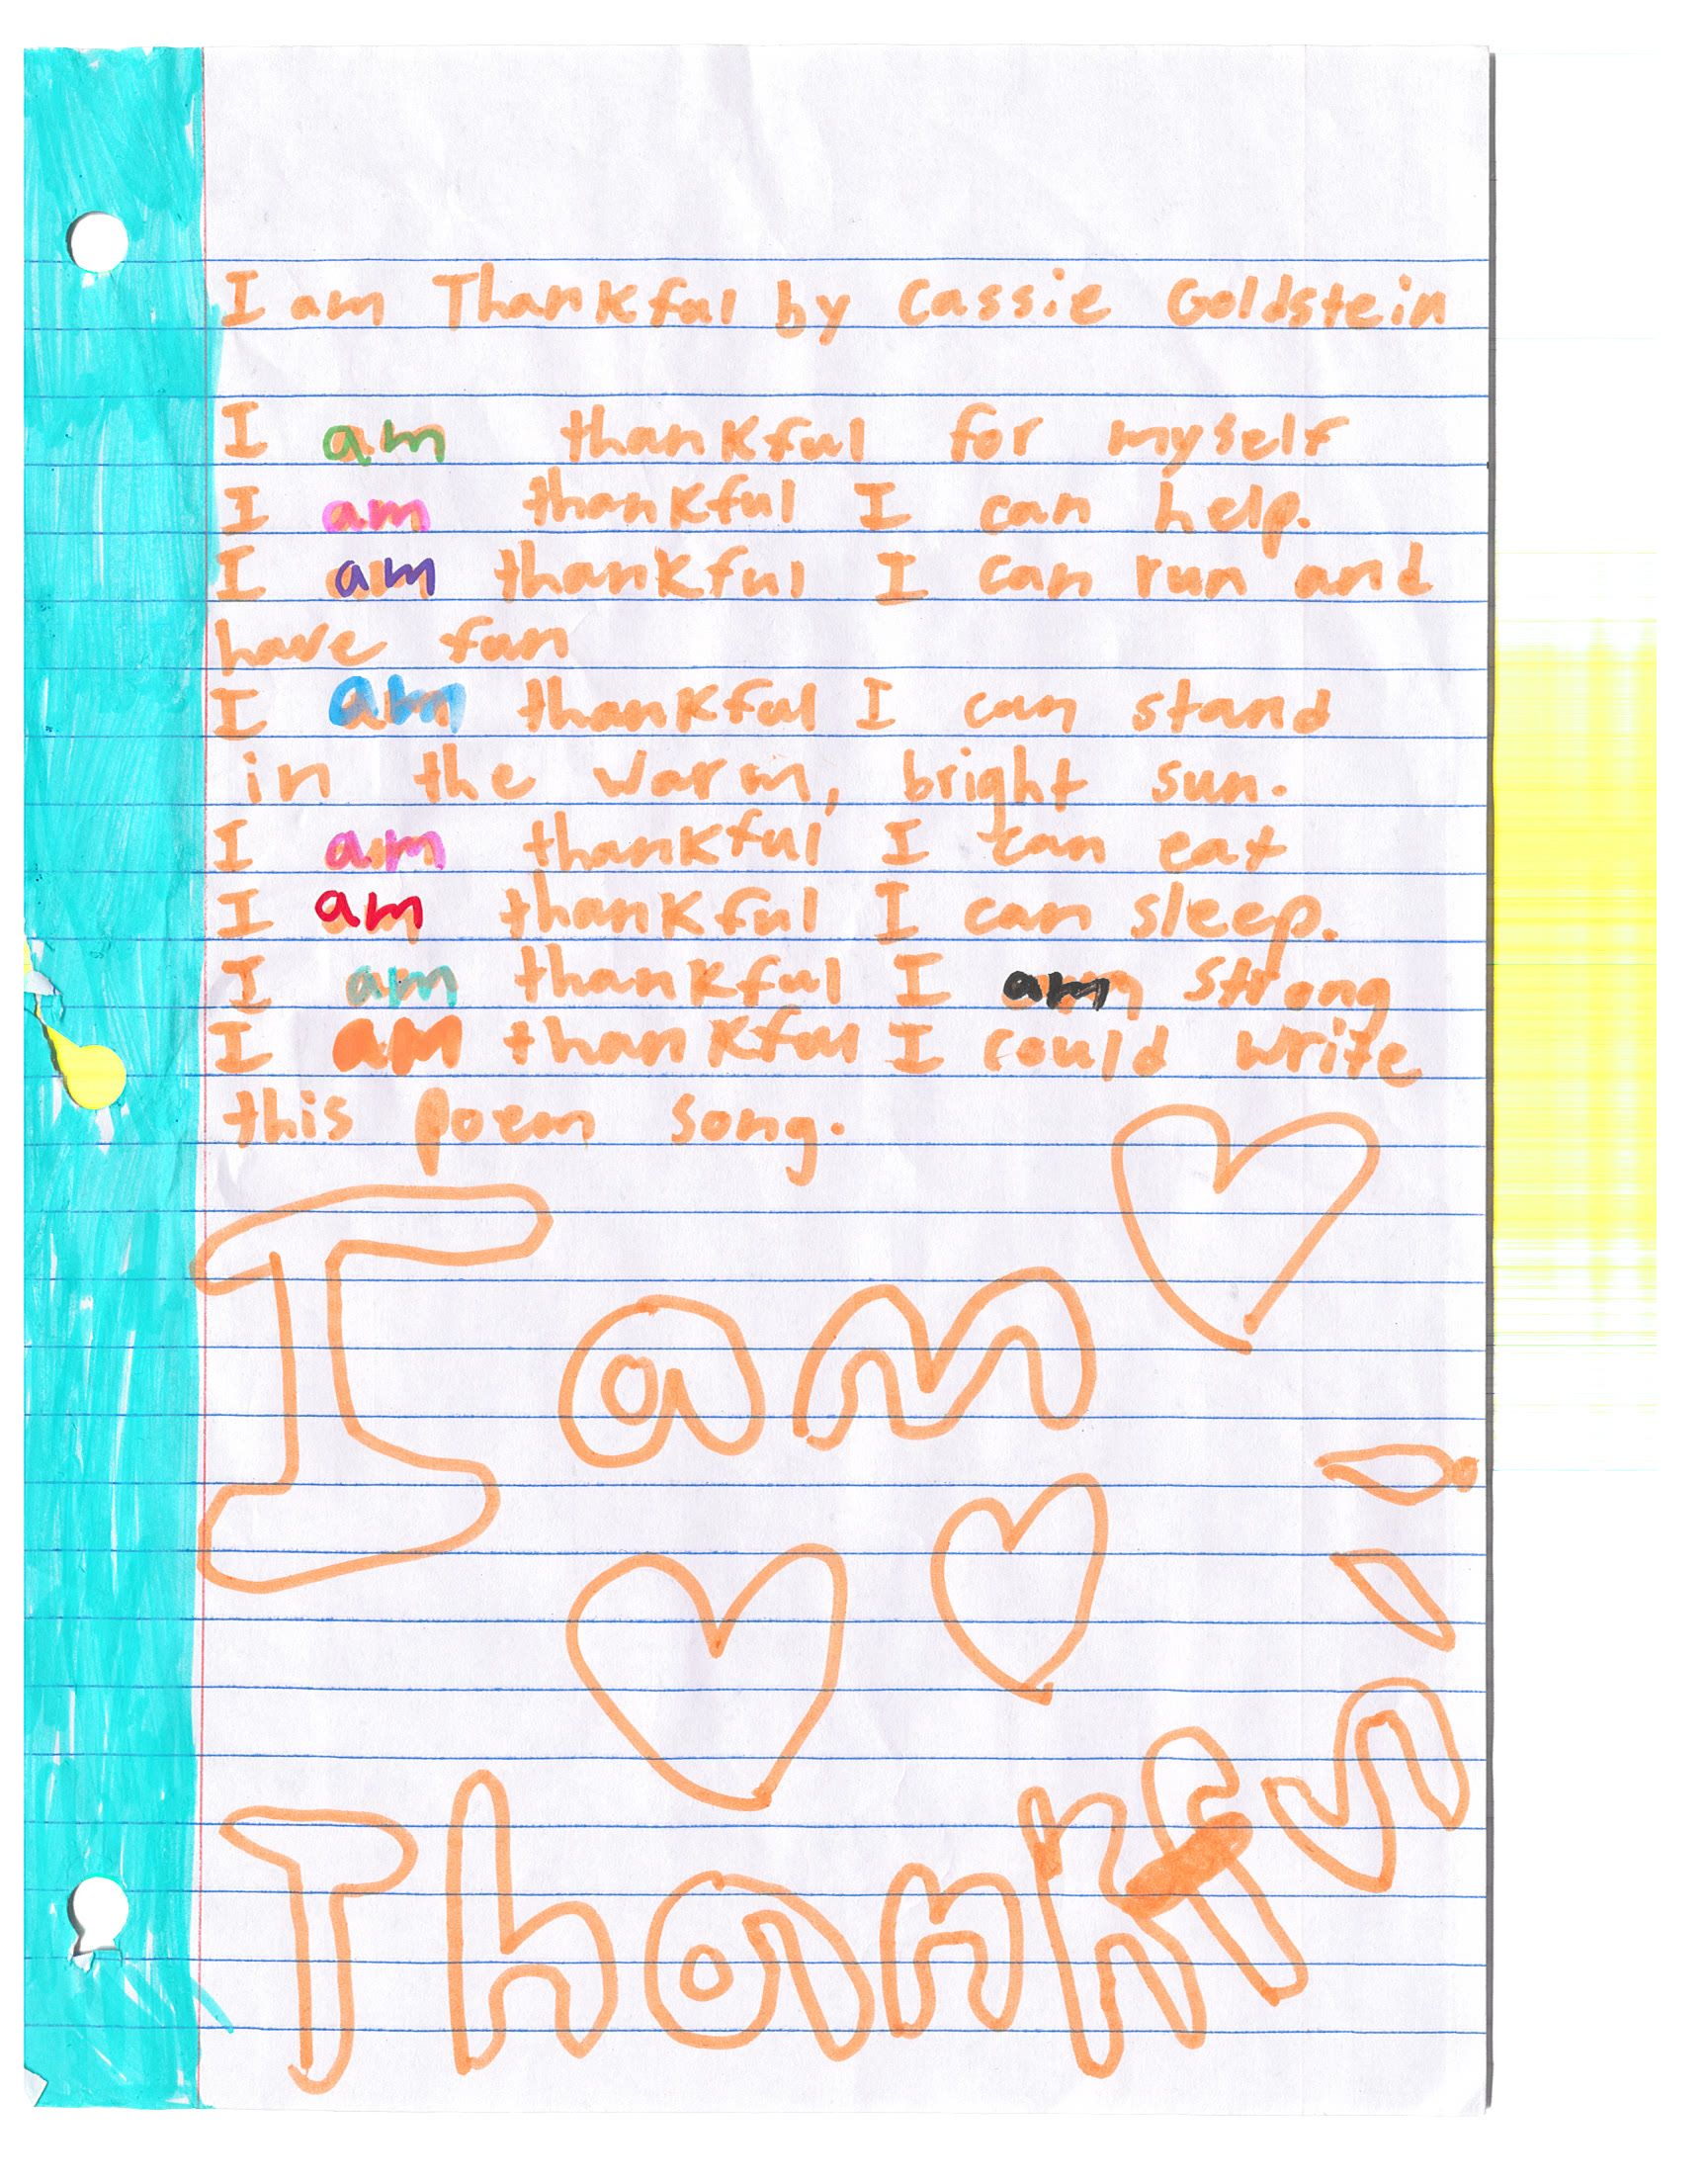 I am Thankful by Cassie Goldstein
I am thankful for myself
I am thankful I can help.
I am thankful I can run and
have fun
I am thankful I can stand
in the warm, bright sun.
I am thankful I can eat
I am thankful I can sleep.
I am thankful I am strong
I am thankful I could write
this poem song.
I am
Thankful